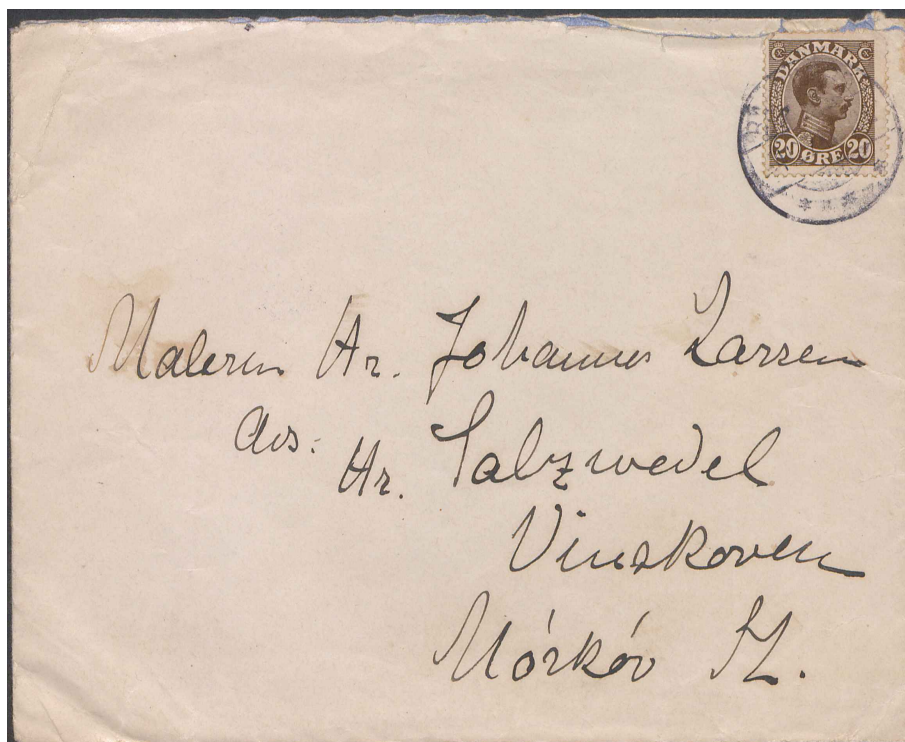 DANMARK
20 ØRE 20
Maleren Hr. Johannes Larsen
Adr:
Hr. Salzwedel
Vinskoven
Mórkóv St.